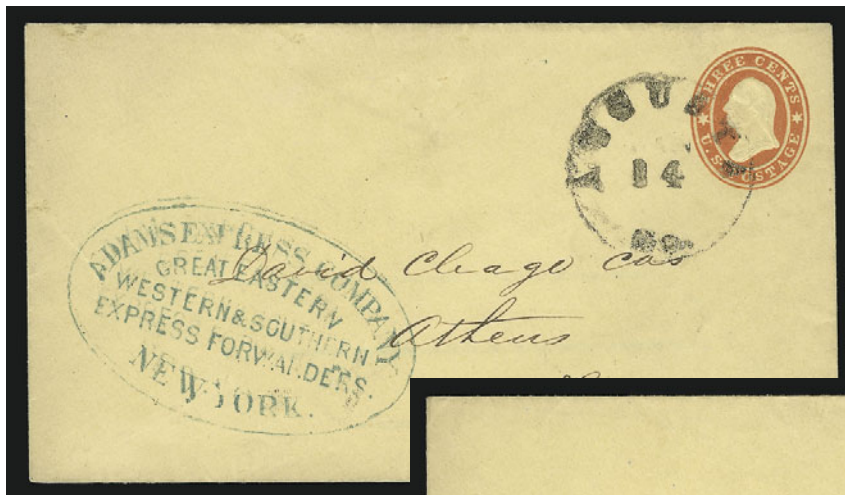 THREE CENTS
U.S. POSTAGE
AUGUSTA
14
ADAMS EXPRESS COMPANY
GREAT EASTERN
WESTERN & SOUTHERN
EXPRESS FORWARDERS.
NEW-YORK.
David Cleage
Athens